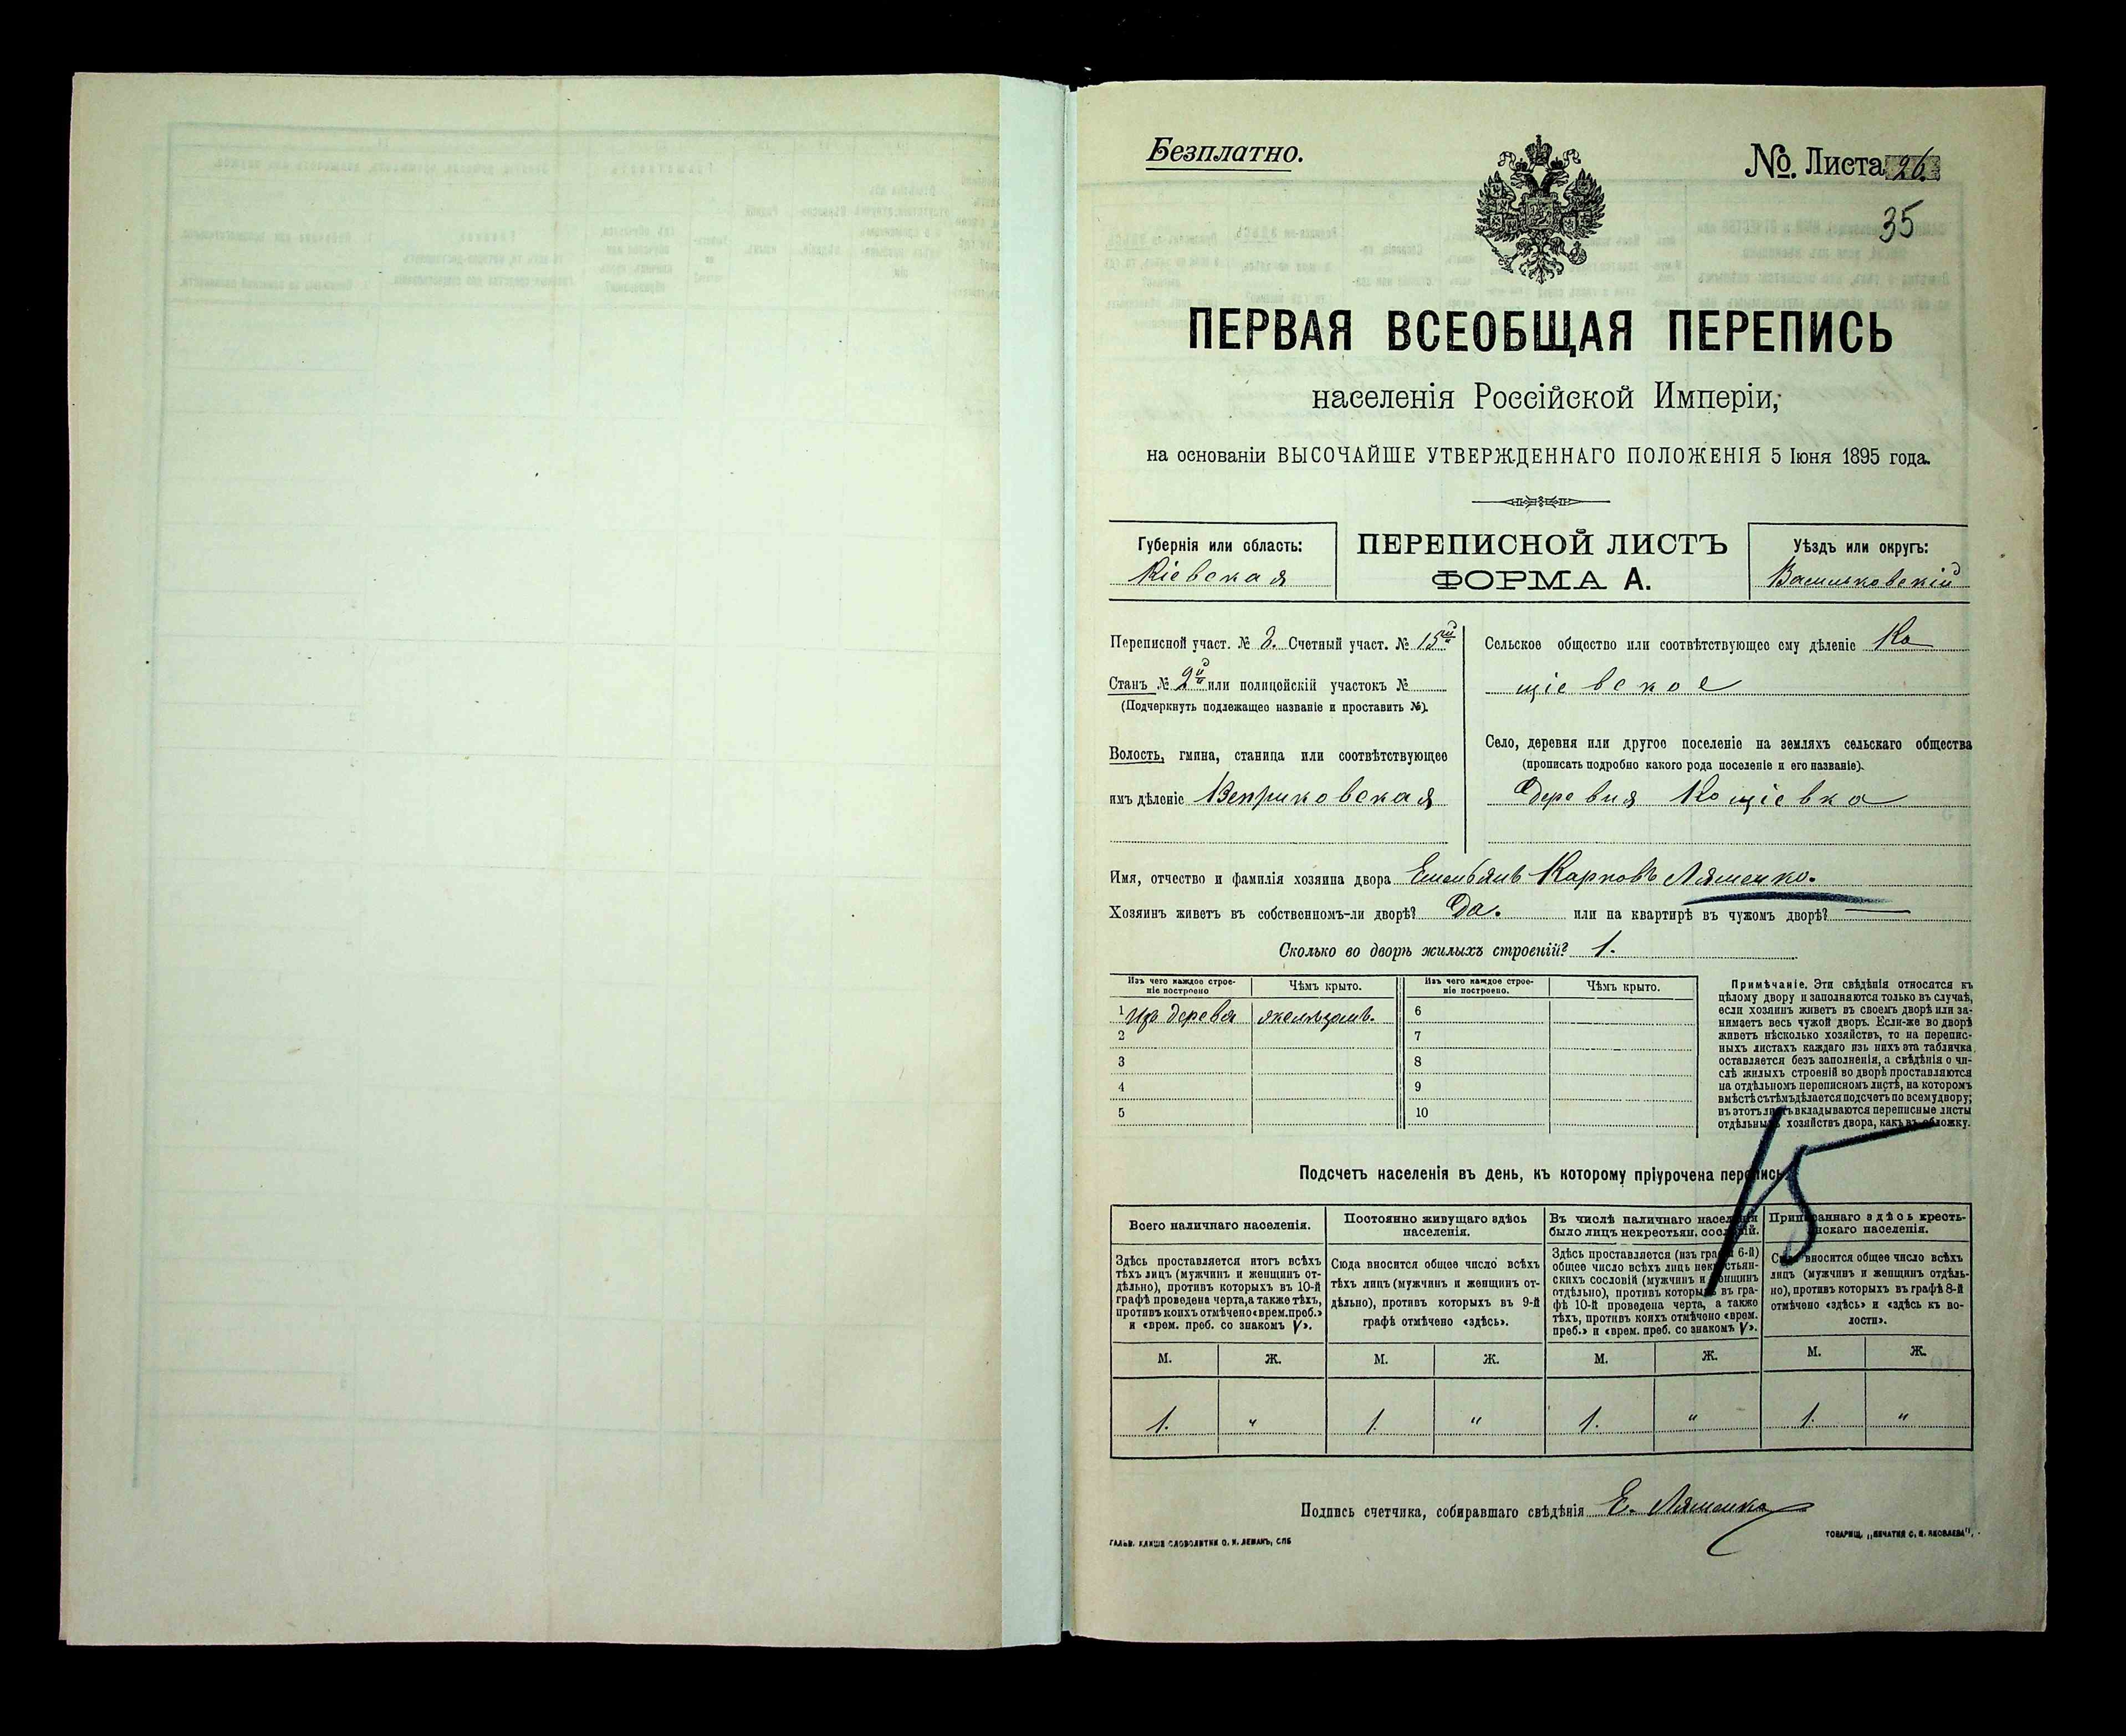 Безплатно.
№. Листа 26.
35
ПЕРВАЯ ВСЕОБЩАЯ ПЕРЕПИСЬ
населенія Россійской Имперіи,
на основаніи ВЫСОЧАЙШЕ УТВЕРЖДЕННАГО ПОЛОЖЕНІЯ 5 Іюня 1895 года.
Губернія или область:
Кіевская
ПЕРЕПИСНОЙ ЛИСТЪ
ФОРМА А.
Уѣздъ или округъ:
Васильковскій
Переписной участ. № 3. Счетный участ. № 15й
Станъ № 2й или полицейскій участокъ №
(Подчеркнуть подлежащее названіе и проставить №).
Волость, гмина, станица или соотвѣтствующее
имъ дѣленіе Веприковская
Сельское общество или соотвѣтствующее ему дѣленіе Ко
щіевское
Село, деревня или другое поселеніе на земляхъ сельскаго общества
(прописать подробно какого рода поселеніе и его названіе).
деревня Кощіевка
Имя, отчество и фамилія хозяина двора Емельянъ Карповъ Ляшенко.
Хозяинъ живетъ въ собственномъ-ли дворѣ? Да. или на квартирѣ въ чужомъ дворѣ? —
Сколько во дворѣ жилыхъ строеній? 1.
Изъ чего каждое строе-
ніе построено
Чѣмъ крыто.
Изъ чего каждое строе-
ніе построено.
Чѣмъ крыто.
1 Изъ дерева желѣзомъ. 6
2 7
3 8
4 9
5 10
Примѣчаніе. Эти свѣдѣнія относятся къ
цѣлому двору и заполняются только въ случаѣ,
если хозяинъ живетъ въ своемъ дворѣ или за-
нимаетъ весь чужой дворъ. Если-же во дворѣ
живетъ нѣсколько хозяйствъ, то на перепис-
ныхъ листахъ каждаго изъ нихъ эта табличка
оставляется безъ заполненія, а свѣдѣнія о чи-
слѣ жилыхъ строеній во дворѣ проставляются
на отдѣльномъ переписномъ листѣ, на которомъ
вмѣстѣ съ тѣмъ дѣлается подсчетъ по всему двору;
въ этотъ листъ вкладываются переписные листы
отдѣльныхъ хозяйствъ двора, какъ въ обложку.
15
Подсчетъ населенія въ день, къ которому пріурочена перепись.
Всего наличнаго населенія.
Здѣсь проставляется итогъ всѣхъ
тѣхъ лицъ (мужчинъ и женщинъ от-
дѣльно), противъ которыхъ въ 10-й
графѣ проведена черта, а также тѣхъ,
противъ коихъ отмѣчено «врем. преб.»
и «врем. преб. со знакомъ V».
Постоянно живущаго здѣсь
населенія.
Сюда вносится общее число всѣхъ
тѣхъ лицъ (мужчинъ и женщинъ от-
дѣльно), противъ которыхъ въ 9-й
графѣ отмѣчено «здѣсь».
Въ числѣ наличнаго населенія
было лицъ некрестьян. сословій.
Здѣсь проставляется (изъ графы 6-й)
общее число всѣхъ лицъ некрестьян-
скихъ сословій (мужчинъ и женщинъ
отдѣльно), противъ которыхъ въ гра-
фѣ 10-й проведена черта, а также
тѣхъ, противъ коихъ отмѣчено «врем.
преб.» и «врем. преб. со знакомъ V».
Приписаннаго здѣсь кресть-
янскаго населенія.
Сюда вносится общее число всѣхъ
лицъ (мужчинъ и женщинъ отдѣль-
но), противъ которыхъ въ графѣ 8-й
отмѣчено «здѣсь» и «здѣсь къ во-
лости».
М. Ж. М. Ж. М. Ж. М. Ж.
1. " 1. " 1. " 1. "
Подпись счетчика, собиравшаго свѣдѣнія Е. Ляшенко
ГАЛЬВ. КЛИШЕ СЛОВОЛИТНИ О. И. ЛЕМАНЪ, СПБ
ТОВАРИЩ. „ПЕЧАТНЯ С. П. ЯКОВЛЕВА",